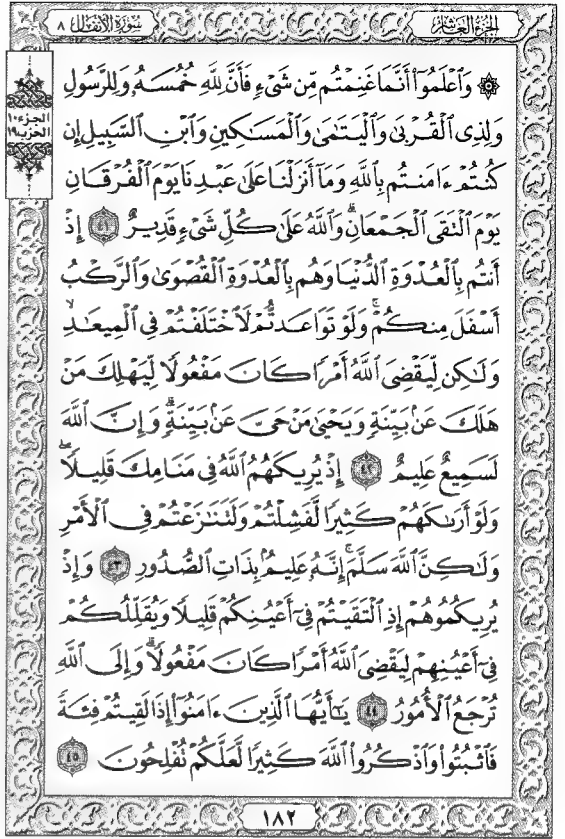 الجزء العاشر
سورة الأنفال ٨
الجزء ١٠
الحزب ١٩
۞ وَٱعْلَمُوٓا۟ أَنَّمَا غَنِمْتُم مِّن شَىْءٍ فَأَنَّ لِلَّهِ خُمُسَهُۥ وَلِلرَّسُولِ
وَلِذِى ٱلْقُرْبَىٰ وَٱلْيَتَٰمَىٰ وَٱلْمَسَٰكِينِ وَٱبْنِ ٱلسَّبِيلِ إِن
كُنتُمْ ءَامَنتُم بِٱللَّهِ وَمَآ أَنزَلْنَا عَلَىٰ عَبْدِنَا يَوْمَ ٱلْفُرْقَانِ
يَوْمَ ٱلْتَقَى ٱلْجَمْعَانِ ۗ وَٱللَّهُ عَلَىٰ كُلِّ شَىْءٍ قَدِيرٌ ٤١ إِذْ
أَنتُم بِٱلْعُدْوَةِ ٱلدُّنْيَا وَهُم بِٱلْعُدْوَةِ ٱلْقُصْوَىٰ وَٱلرَّكْبُ
أَسْفَلَ مِنكُمْ ۚ وَلَوْ تَوَاعَدتُّمْ لَٱخْتَلَفْتُمْ فِى ٱلْمِيعَٰدِ ۙ
وَلَٰكِن لِّيَقْضِىَ ٱللَّهُ أَمْرًا كَانَ مَفْعُولًا لِّيَهْلِكَ مَنْ
هَلَكَ عَنۢ بَيِّنَةٍ وَيَحْيَىٰ مَنْ حَىَّ عَنۢ بَيِّنَةٍ ۗ وَإِنَّ ٱللَّهَ
لَسَمِيعٌ عَلِيمٌ ٤٢ إِذْ يُرِيكَهُمُ ٱللَّهُ فِى مَنَامِكَ قَلِيلًا ۖ
وَلَوْ أَرَىٰكَهُمْ كَثِيرًا لَّفَشِلْتُمْ وَلَتَنَٰزَعْتُمْ فِى ٱلْأَمْرِ
وَلَٰكِنَّ ٱللَّهَ سَلَّمَ ۗ إِنَّهُۥ عَلِيمٌۢ بِذَاتِ ٱلصُّدُورِ ٤٣ وَإِذْ
يُرِيكُمُوهُمْ إِذِ ٱلْتَقَيْتُمْ فِىٓ أَعْيُنِكُمْ قَلِيلًا وَيُقَلِّلُكُمْ
فِىٓ أَعْيُنِهِمْ لِيَقْضِىَ ٱللَّهُ أَمْرًا كَانَ مَفْعُولًا ۗ وَإِلَى ٱللَّهِ
تُرْجَعُ ٱلْأُمُورُ ٤٤ يَٰٓأَيُّهَا ٱلَّذِينَ ءَامَنُوٓا۟ إِذَا لَقِيتُمْ فِئَةً
فَٱثْبُتُوا۟ وَٱذْكُرُوا۟ ٱللَّهَ كَثِيرًا لَّعَلَّكُمْ تُفْلِحُونَ ٤٥
١٨٢